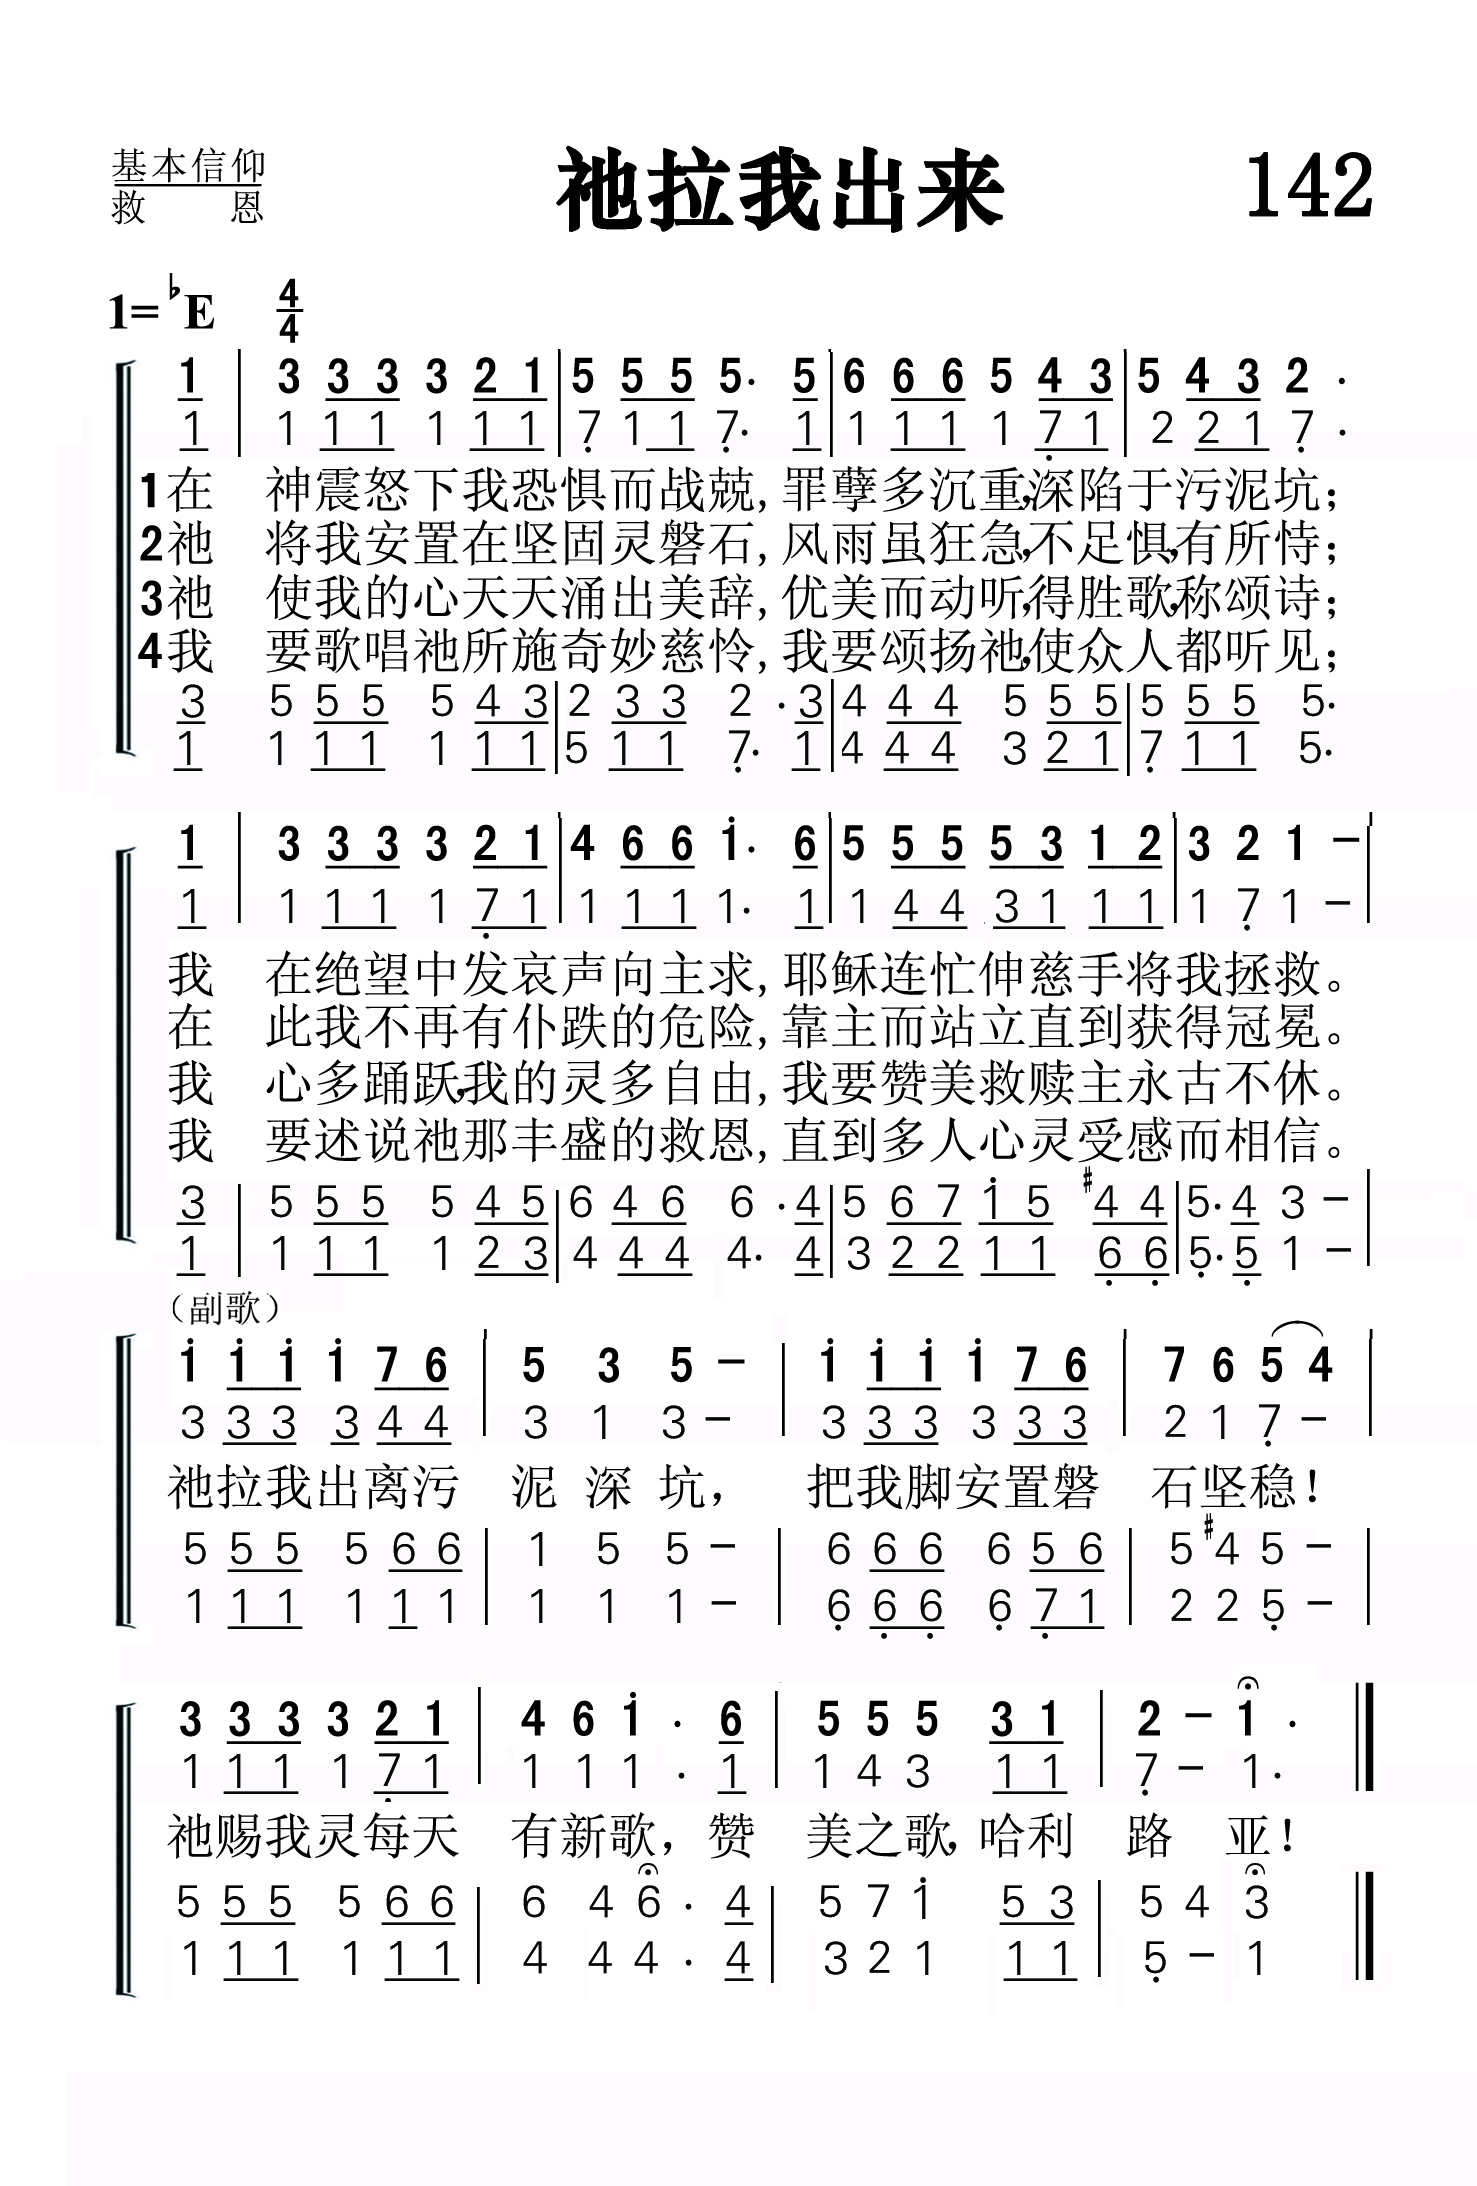 基本信仰
救恩
祂拉我出来
142
1=♭E 4/4
1 | 3 3 3 3 2 1 | 5 5 5 5· 5 | 6 6 6 5 4 3 | 5 4 3 2 ·
1 | 1 1 1 1 1 1 | 7̣ 1 1 7̣· 1 | 1 1 1 1 7̣ 1 | 2 2 1 7̣ ·
1在 神震怒下我恐惧而战兢,罪孽多沉重,深陷于污泥坑；
2祂 将我安置在坚固灵磐石,风雨虽狂急,不足惧,有所恃；
3祂 使我的心天天涌出美辞,优美而动听,得胜歌,称颂诗；
4我 要歌唱祂所施奇妙慈怜,我要颂扬祂,使众人都听见；
3 5 5 5 5 4 3 | 2 3 3 2 · 3 | 4 4 4 5 5 5 | 5 5 5 5·
1 1 1 1 1 1 1 | 5 1 1 7̣· 1 | 4 4 4 3 2 1 | 7̣ 1 1 5·
1 | 3 3 3 3 2 1 | 4 6 6 1̇· 6 | 5 5 5 5 3 1 2 | 3 2 1 – |
1 | 1 1 1 1 7̣ 1 | 1 1 1 1· 1 | 1 4 4 3 1 1 1 | 1 7̣ 1 – |
我 在绝望中发哀声向主求,耶稣连忙伸慈手将我拯救。
在 此我不再有仆跌的危险,靠主而站立直到获得冠冕。
我 心多踊跃,我的灵多自由,我要赞美救赎主永古不休。
我 要述说祂那丰盛的救恩,直到多人心灵受感而相信。
3 | 5 5 5 5 4 5 | 6 4 6 6 · 4 | 5 6 7 1̇ 5 #4 4 | 5· 4 3 – |
1 | 1 1 1 1 2 3 | 4 4 4 4· 4 | 3 2 2 1 1 6̣ 6̣ | 5̣· 5̣ 1 – |
（副歌）
1̇ 1̇ 1̇ 1̇ 7 6 | 5 3 5 – | 1̇ 1̇ 1̇ 1̇ 7 6 | 7 6 5 4 |
3 3 3 3 4 4 | 3 1 3 – | 3 3 3 3 3 3 | 2 1 7̣ – |
祂拉我出离污 泥深坑， 把我脚安置磐 石坚稳！
5 5 5 5 6 6 | 1 5 5 – | 6 6 6 6 5 6 | 5 #4 5 – |
1 1 1 1 1 1 | 1 1 1 – | 6̣ 6̣ 6̣ 6̣ 7̣ 1 | 2 2 5̣ – |
3 3 3 3 2 1 | 4 6 1̇ · 6 | 5 5 5 3 1 | 2 – 1̇ · ‖
1 1 1 1 7̣ 1 | 1 1 1 · 1 | 1 4 3 1 1 | 7̣ – 1· ‖
祂赐我灵每天 有新歌，赞 美之歌,哈利 路 亚！
5 5 5 5 6 6 | 6 4 6 · 4 | 5 7 1̇ 5 3 | 5 4 3 ‖
1 1 1 1 1 1 | 4 4 4 · 4 | 3 2 1 1 1 | 5̣ – 1 ‖